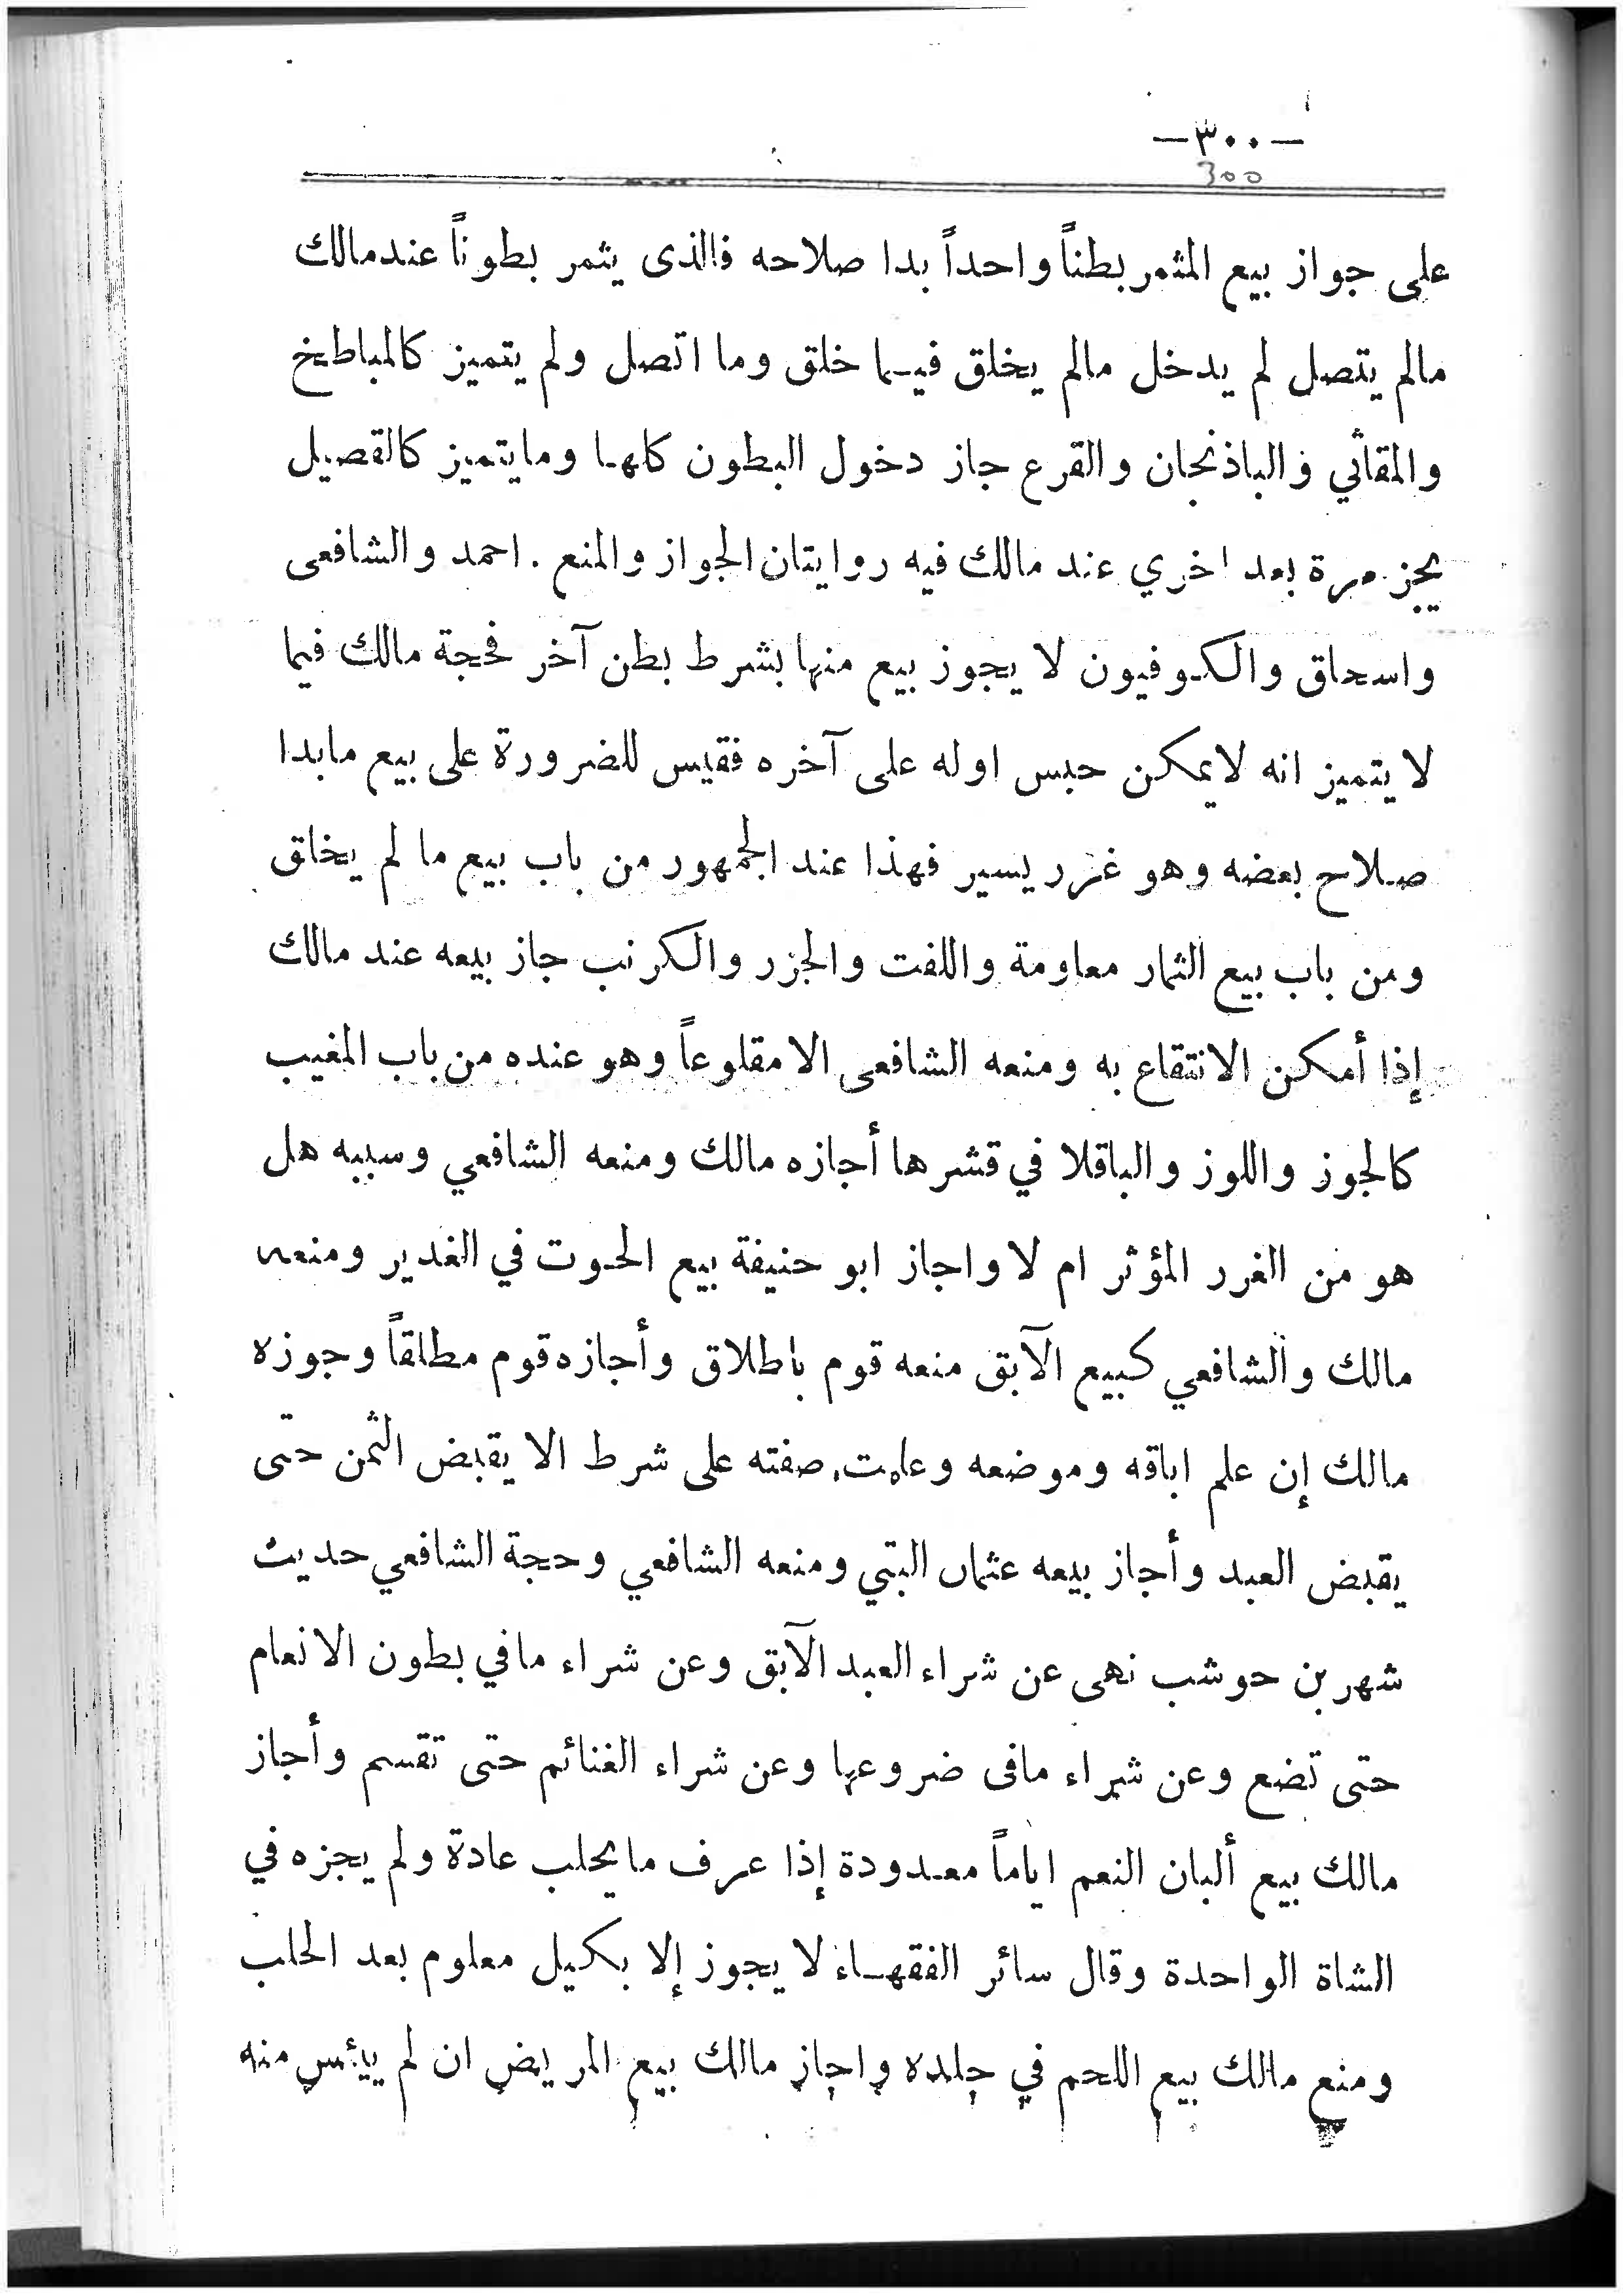 —٣٠٠—
300
على جواز بيع المثمر بطناً واحداً بدا صلاحه فالذى يثمر بطوناً عندمالك
مالم يتصل لم يدخل مالم يخلق فيما خلق وما اتصل ولم يتميز كالمباطخ
والمقاثي والباذنجان والقرع جاز دخول البطون كلها ومايتميز كالقصيل
يجز مرة بعد اخري عند مالك فيه روايتان الجواز والمنع . احمد والشافعى
واسحاق والكوفيون لا يجوز بيع منها بشرط بطن آخر فحجة مالك فيما
لا يتميز انه لايمكن حبس اوله على آخره فقيس للضرورة على بيع مابدا
صلاح بعضه وهو غرر يسير فهذا عند الجمهور من باب بيع ما لم يخلق
ومن باب بيع الثمار معاومة واللفت والجزر والكرنب جاز بيعه عند مالك
إذا أمكن الانتقاع به ومنعه الشافعى الا مقلوعاً وهو عنده من باب المغيب
كالجوز واللوز والباقلا في قشرها أجازه مالك ومنعه الشافعي وسببه هل
هو من الغرر المؤثر ام لا واجاز ابو حنيفة بيع الحوت في الغدير ومنعه
مالك والشافعي كبيع الآبق منعه قوم باطلاق وأجازه قوم مطلقاً وجوزه
مالك إن علم اباقه وموضعه وعلمت صفته على شرط الا يقبض الثمن حتى
يقبض العبد وأجاز بيعه عثمان البتي ومنعه الشافعي وحجة الشافعي حديث
شهر بن حوشب نهى عن شراء العبد الآبق وعن شراء مافي بطون الانعام
حتى تضع وعن شراء مافى ضروعها وعن شراء الغنائم حتى تقسم وأجاز
مالك بيع ألبان النعم اياماً معدودة إذا عرف مايحلب عادة ولم يجزه في
الشاة الواحدة وقال سائر الفقهاء لا يجوز إلا بكيل معلوم بعد الحلب
ومنع مالك بيع اللحم في جلده واجاز مالك بيع المريض ان لم ييئس منه